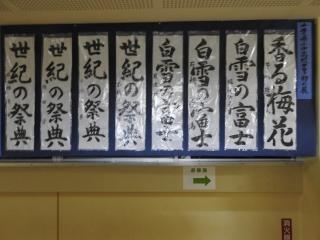 香る梅花
白雪の富士
白雪の富士
白雪の富士
世紀の祭典
世紀の祭典
世紀の祭典
世紀の祭典
消火器